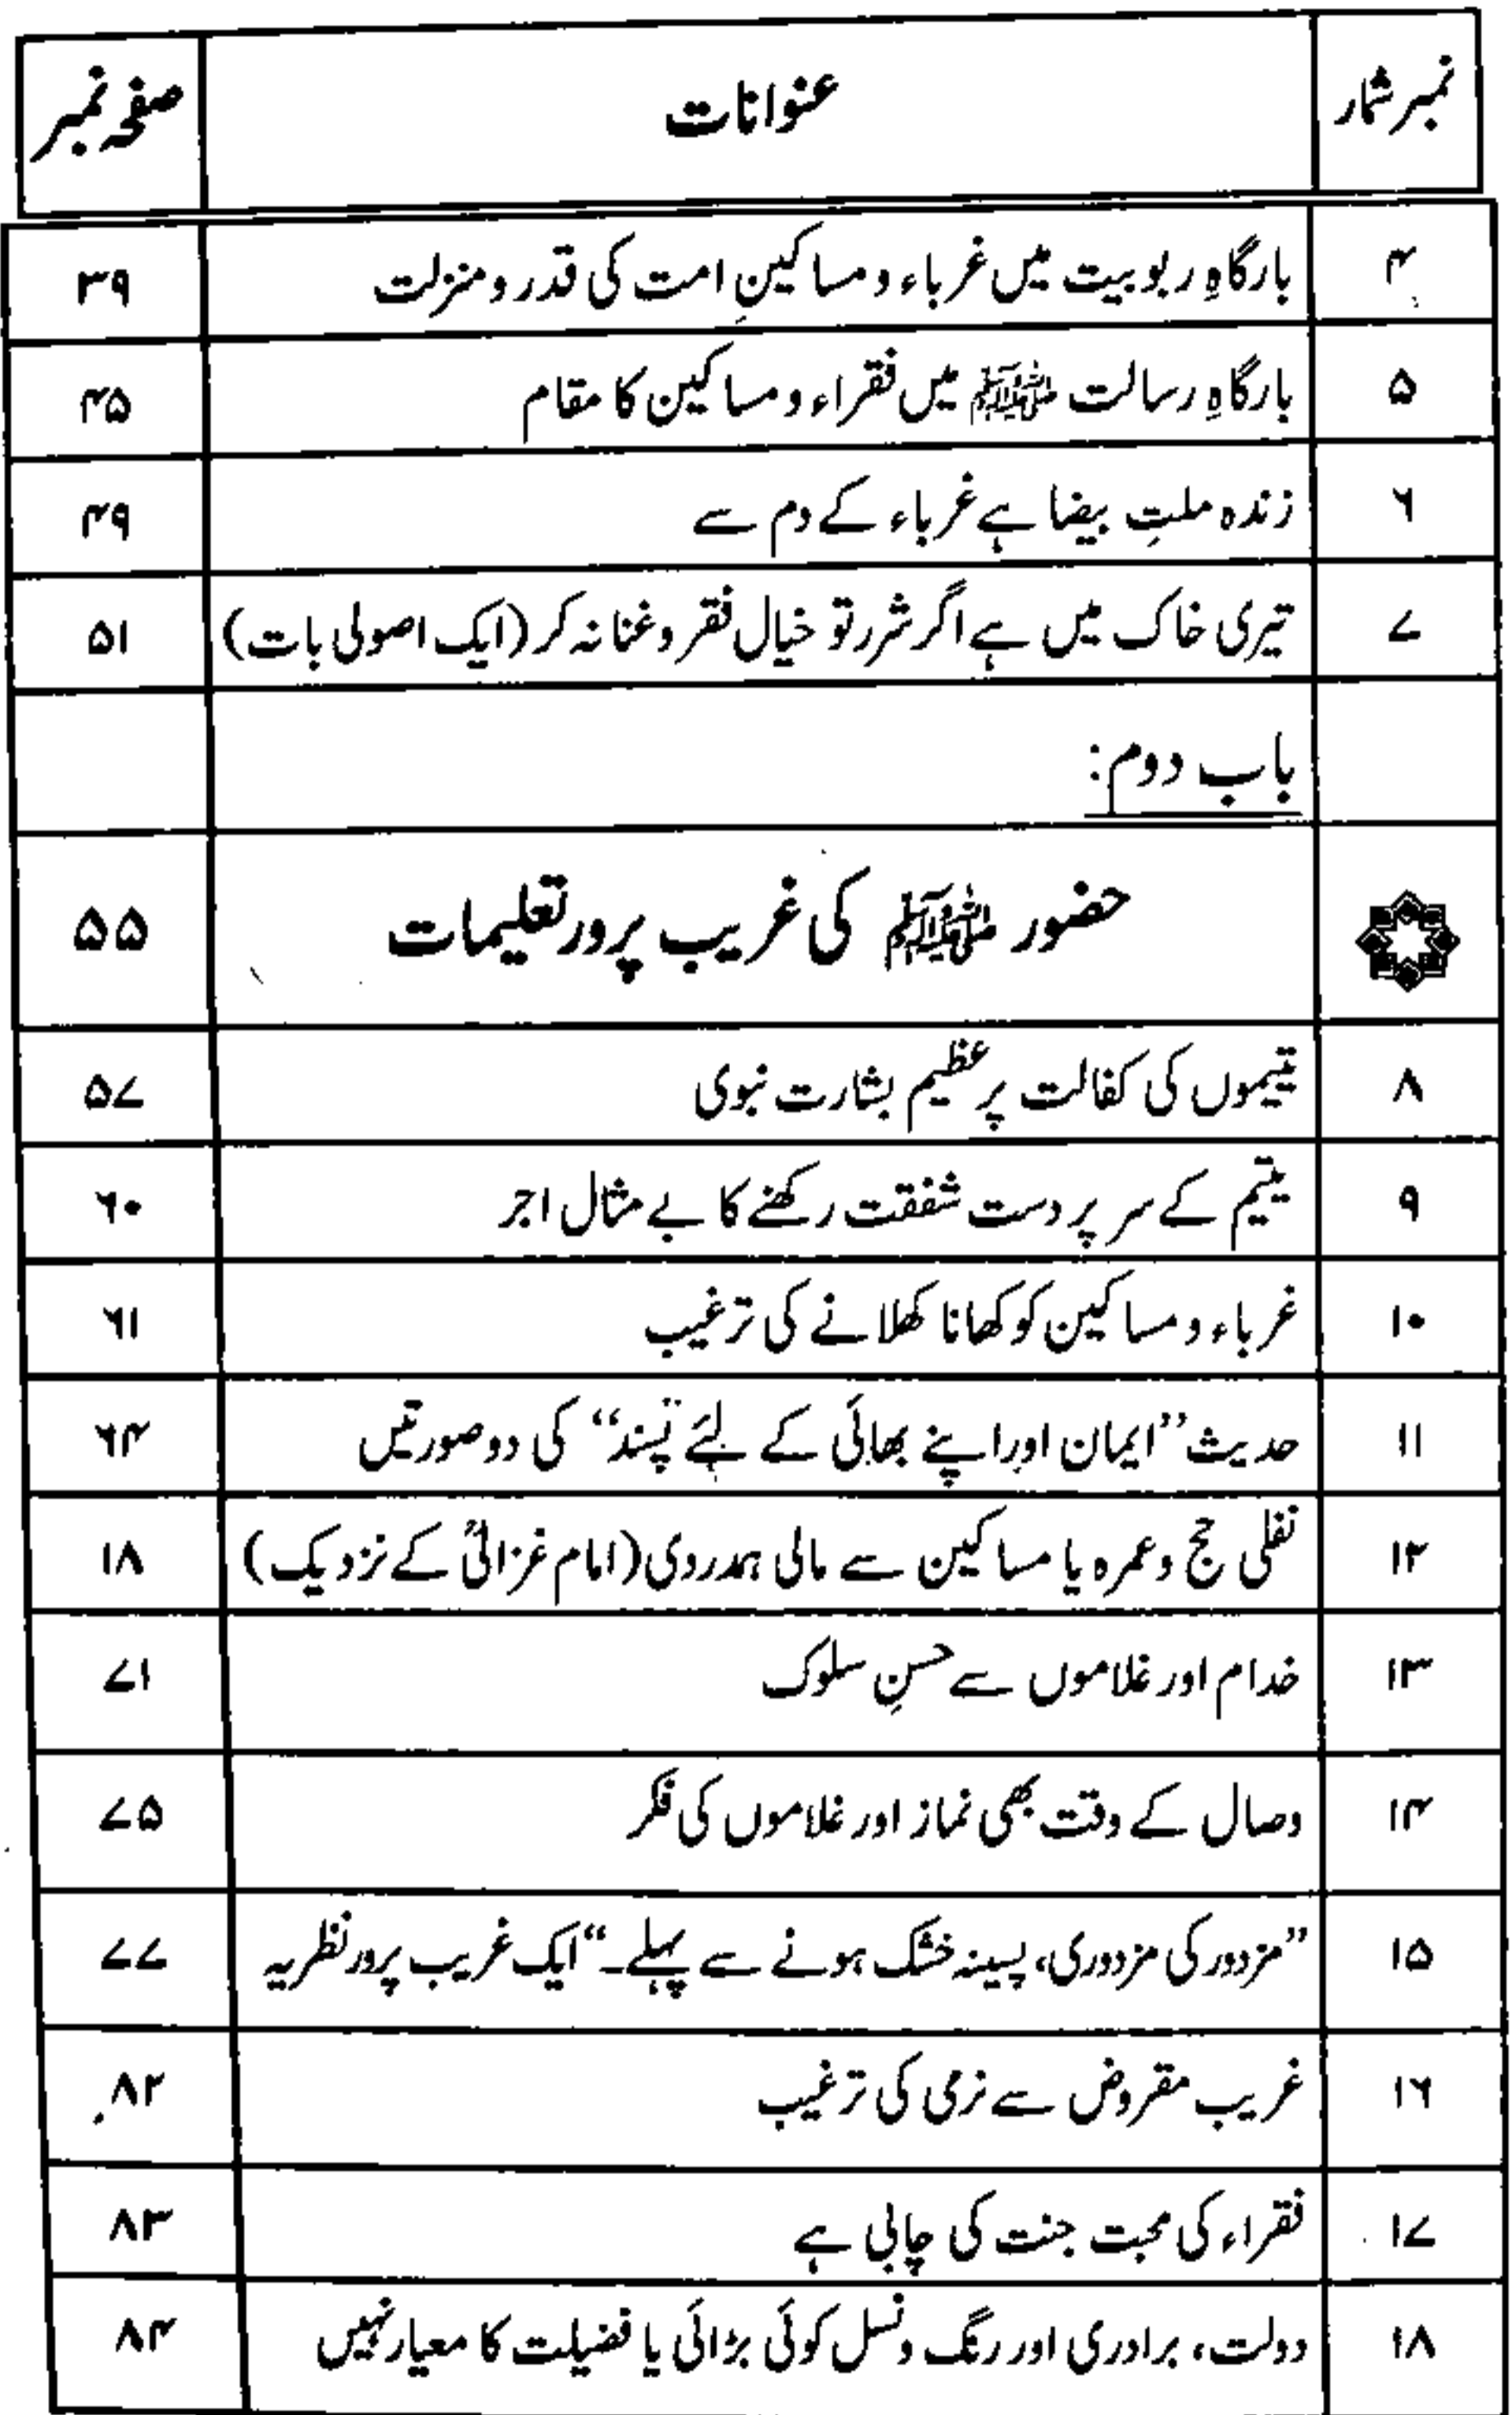 نمبر شمار عنوانات صفحہ نمبر
۴ بارگاہِ ربوبیت میں غرباء و مساکینِ امت کی قدر و منزلت ۳۹
۵ بارگاہِ رسالت ﷺ میں فقراء و مساکین کا مقام ۴۵
۶ زندہ ملتِ بیضا ہے غرباء کے دم سے ۴۹
۷ تیری خاک میں ہے اگر شرر تو خیال فقر و غنا نہ کر (ایک اصولی بات) ۵۱
باب دوم:
حضور ﷺ کی غریب پرور تعلیمات ۵۵
۸ یتیموں کی کفالت پر عظیم بشارت نبوی ۵۷
۹ یتیم کے سر پر دست شفقت رکھنے کا بے مثال اجر ۶۰
۱۰ غرباء و مساکین کو کھانا کھلانے کی ترغیب ۶۱
۱۱ حدیث ’’ایمان اور اپنے بھائی کے لئے پسند‘‘ کی دو صورتیں ۶۴
۱۲ نفلی حج و عمرہ یا مساکین سے مالی ہمدردی (امام غزالیؒ کے نزدیک) ۱۸
۱۳ خدام اور غلاموں سے حسنِ سلوک ۷۱
۱۴ وصال کے وقت بھی نماز اور غلاموں کی فکر ۷۵
۱۵ ’’مزدور کی مزدوری، پسینہ خشک ہونے سے پہلے۔‘‘ ایک غریب پرور نظریہ ۷۷
۱۶ غریب مقروض سے نرمی کی ترغیب ۸۲
۱۷ فقراء کی محبت جنت کی چابی ہے ۸۳
۱۸ دولت، برادری اور رنگ و نسل کوئی بڑائی یا فضیلت کا معیار نہیں ۸۴